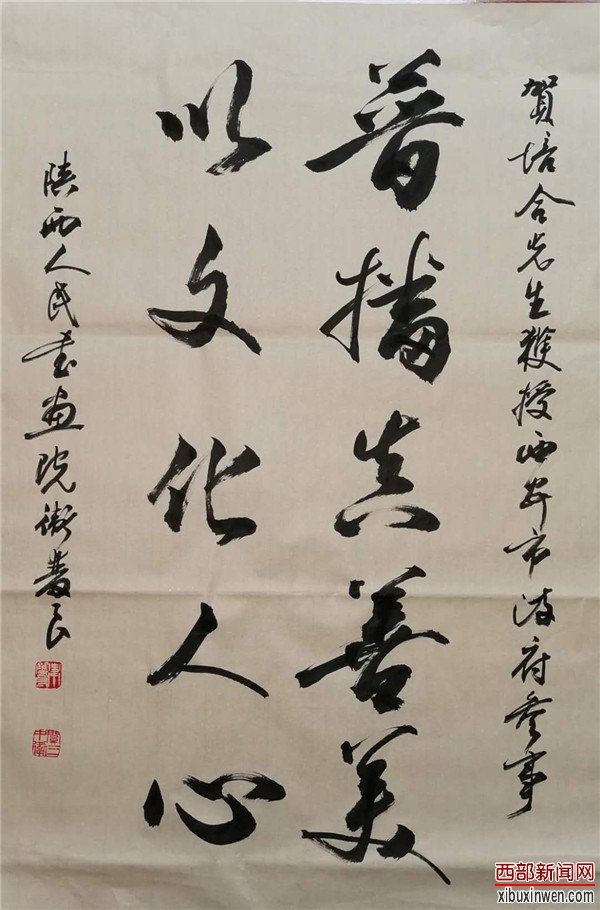 賀培合先生獲授西安市政府参事
普播真善美
以文化人心
陕西人民书画院衛
西部新闻网
xibuxinwen.com